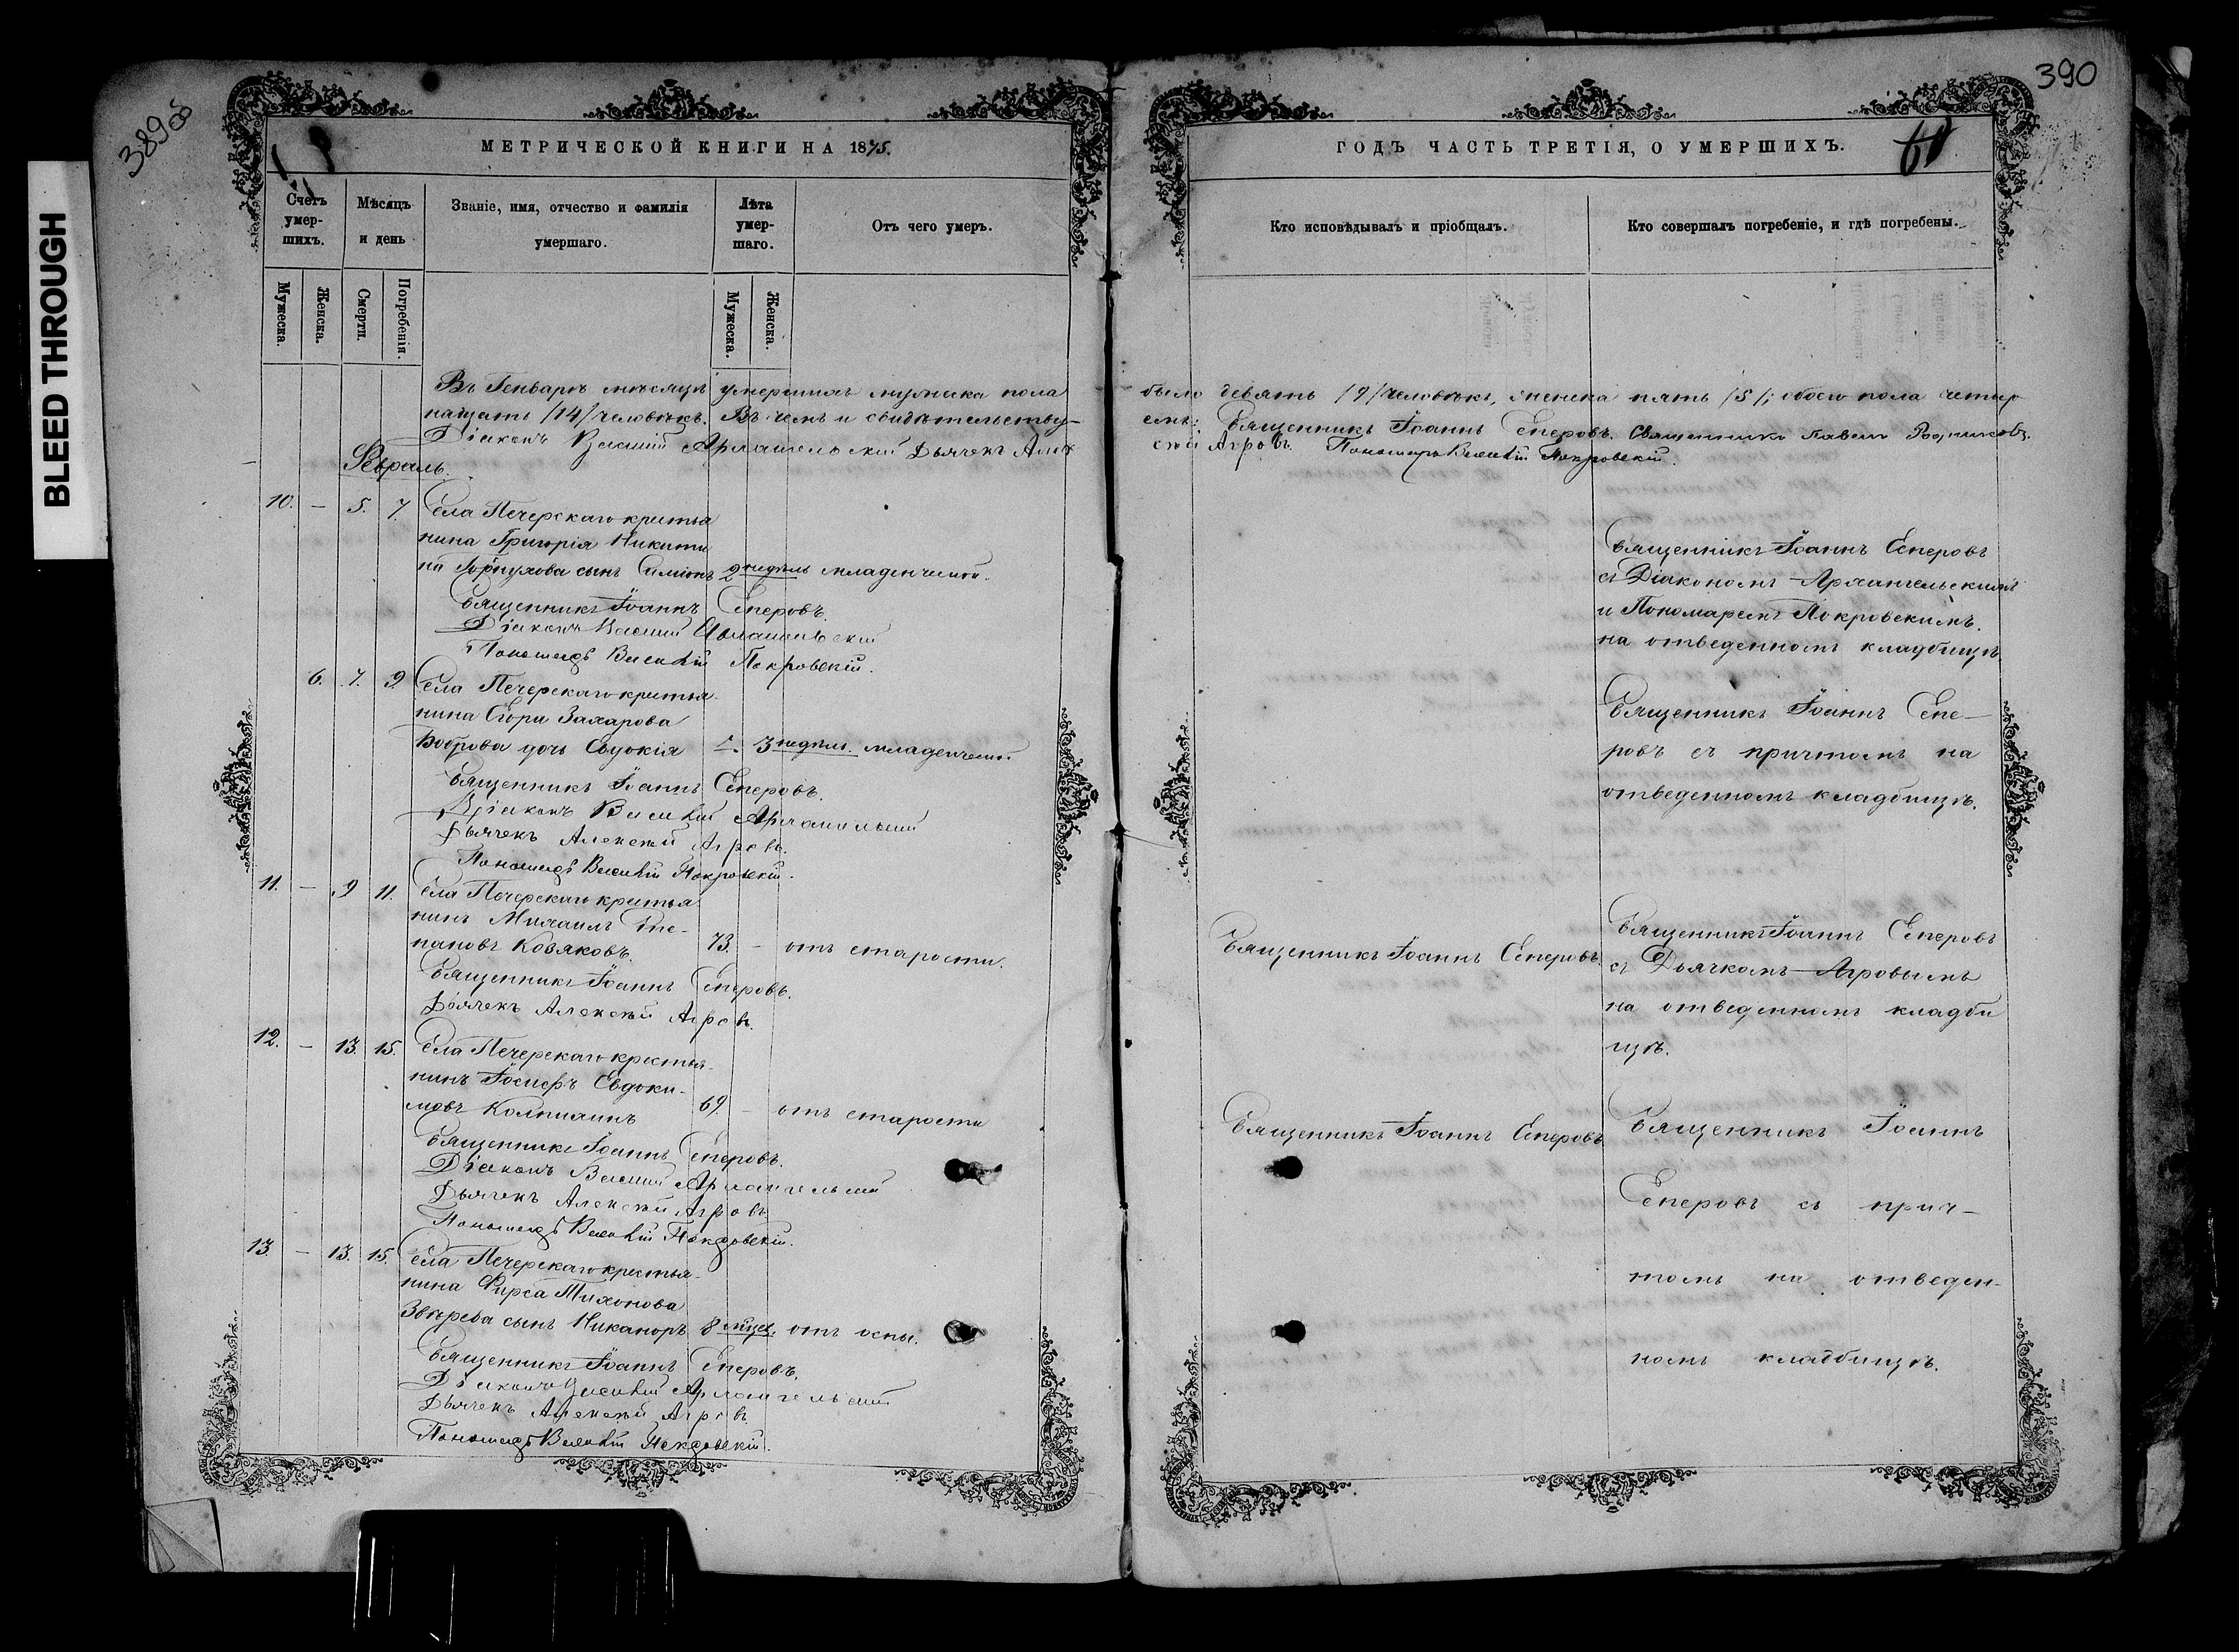 BLEED THROUGH
389об
390
МЕТРИЧЕСКОЙ КНИГИ НА 1875.
Счетъ умер-шихъ.
Мѣсяцъ и день
Званіе, имя, отчество и фамилія умершаго.
Лѣта умер-шаго.
Отъ чего умеръ.
Мужеска.
Женска.
Смерти.
Погребенія.
Мужеска.
Женска.
Въ Генварѣ мѣсяцѣ умершихъ мужеска пола
нацать /14/ человѣкъ. Въ чемъ и свидѣтельству-
Діаконъ Василій Архангельскій Дьячекъ Алек
Февраль.
10. – 5. 7. Села Печерскаго крестья
нина Григорія Никити
на сынъ Симіонъ 2 недѣль младенческой.
Священникъ Іоаннъ Сперовъ.
Діаконъ Василій Архангельскій
Пономарь Василій Покровскій.
6. 7. 9. Села Печерскаго крестья
нина Егора Захарова
Боброва дочь Евдокія 3 недѣль. младенческой
Священникъ Іоаннъ Сперовъ.
Діаконъ Василій Архангельскій
Дьячекъ Алексѣй Агровъ.
Пономарь Василій Покровскій.
11. – 9 11. Села Печерскаго крестья
нинъ Михаилъ Сте-
пановъ Козяковъ. 73. – отъ старости.
Священникъ Іоаннъ Сперовъ.
Дьячекъ Алексѣй Агровъ.
12. – 13. 15. Села Печерскаго крестья-
нинъ Іосифъ Евдоки-
мовъ 69. – отъ старости
Священникъ Іоаннъ Сперовъ.
Діаконъ Василій Архангельскій
Дьячекъ Алексѣй Агровъ
Пономарь Василій Покровскій.
13. – 13. 15. Села Печерскаго крестья-
нина Фирса Тихонова
Звѣрева сынъ Никаноръ 8 мѣсяц. отъ оспы.
Священникъ Іоаннъ Сперовъ.
Діаконъ Василій Архангельскій
Дьячекъ Алексѣй Агровъ
Пономарь Василій Покровскій.
ГОДЪ ЧАСТЬ ТРЕТІЯ, О УМЕРШИХЪ.
Кто исповѣдывалъ и пріобщалъ.
Кто совершалъ погребеніе, и гдѣ погребены.
было девять /9/ человѣкъ, женска пять /5/; обоего пола четыр
емъ: Священникъ Іоаннъ Сперовъ. Священникъ Павелъ Родниковъ.
сѣй Агровъ. Пономарь Василій Покровскій.
Священникъ Іоаннъ Сперовъ
съ Діакономъ Архангельскимъ
и Пономаремъ Покровскимъ.
на отведенномъ кладбищѣ
Священникъ Іоаннъ Спе-
ровъ съ причтомъ на
отведенномъ кладбищѣ.
Священникъ Іоаннъ Сперовъ.
Священникъ Іоаннъ Сперовъ
съ Дьячкомъ Агровымъ
на отведенномъ кладби
щѣ.
Священникъ Іоаннъ Сперовъ
Священникъ Іоаннъ
Сперовъ съ прич-
томъ на отведен-
номъ кладбищѣ.